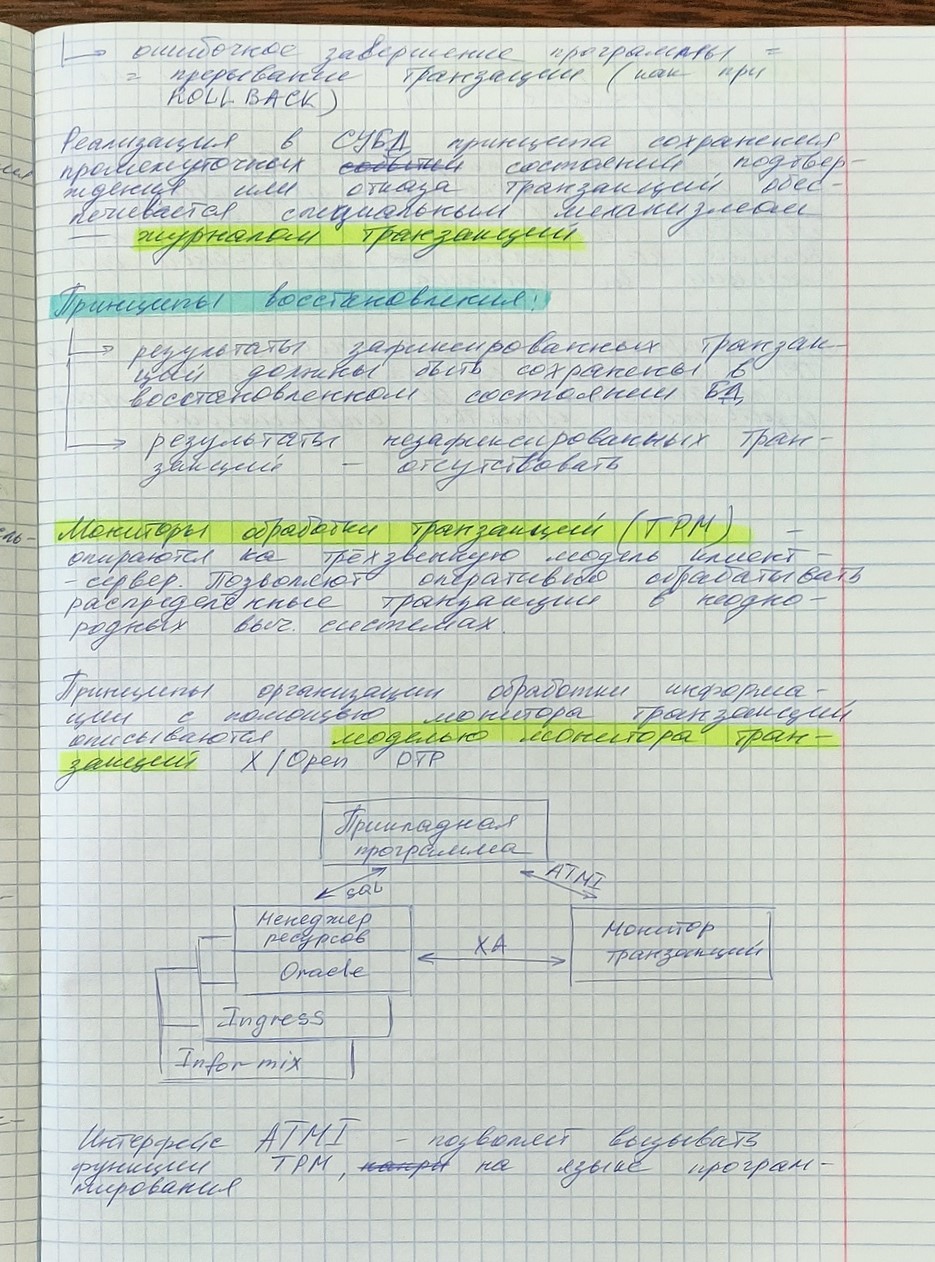 ошибочное завершение программы =
= прерывание транзакции (как при
ROLLBACK)
Реализация в СУБД принципа сохранения
промежуточных событий состояний подтвер-
ждения или отказа транзакций обес-
печивается специальным механизмом
— журналом транзакций
Принципы восстановления:
результаты зафиксированных транзак-
ций должны быть сохранены в
восстановленном состоянии БД
результаты незафиксированных тран-
закций — отсутствовать
Мониторы обработки транзакций (TPM) —
опираются на трёхзвенную модель клиент-
-сервер. Позволяют оперативно обрабатывать
распределённые транзакции в неодно-
родных выч. системах.
Принципы организации обработки информа-
ции с помощью монитора транзакций
описываются моделью монитора тран-
закций X/Open DTP
Прикладная
программа
SQL
ATMI
Менеджер
ресурсов
XA
Монитор
транзакций
Oracle
Ingress
Informix
Интерфейс ATMI - позволяет вызывать
функции TPM, напри на языке програм-
мирования